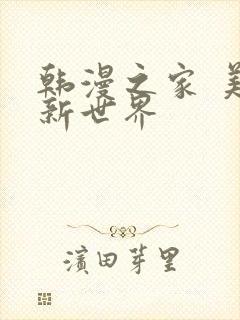 韩漫之家 美
新世界
濱田芽里